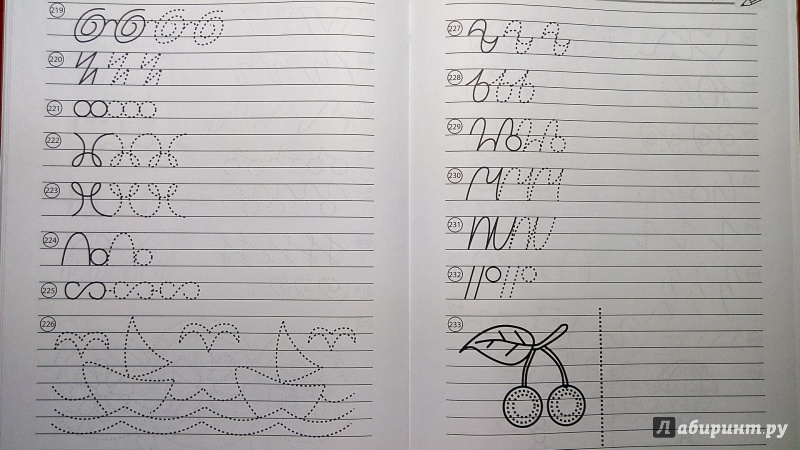 219
220
221
222
223
224
225
226
227
228
229
230
231
232
233
Лабиринт.ру